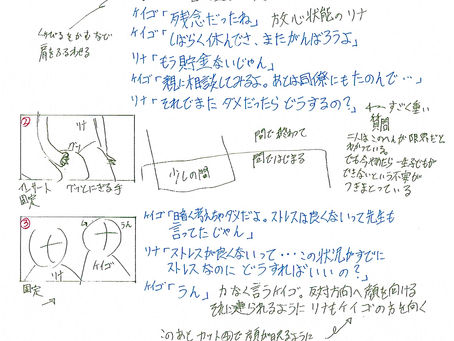 ケイゴ「残念だったね」 放心状態のリナ
くちびるをかもなで
肩をふるわせる
ケイゴ「しばらく休んでさ、またがんばろうよ」
リナ「もう貯金ないじゃん」
ケイゴ「親に相談してみるよ。あとは同僚にもたのんで…」
リナ「それでまたダメだったらどうするの?」
←すごく重い
質問
二人はこのへんが限界だと
わかっている。
でも今やめたら一生子どもが
できないという不安が
つきまとっている
②
リナ
グッ
インサート
固定
グッとにぎる手
少しの間
間で終わって
間ではじまる
③
うん
リナ
ケイゴ
固定
ケイゴ「暗く考えちゃダメだよ。ストレスは良くないって先生も
言ってたじゃん」
リナ「ストレスが良くないって…この状況がすでに
ストレスなのにどうすればいいの?」
ケイゴ「うん」 力なく言うケイゴ。反対方向へ顔を向ける
それに遮られるようにリナもケイゴの方を向く
このあとカット④で顔が映えるように